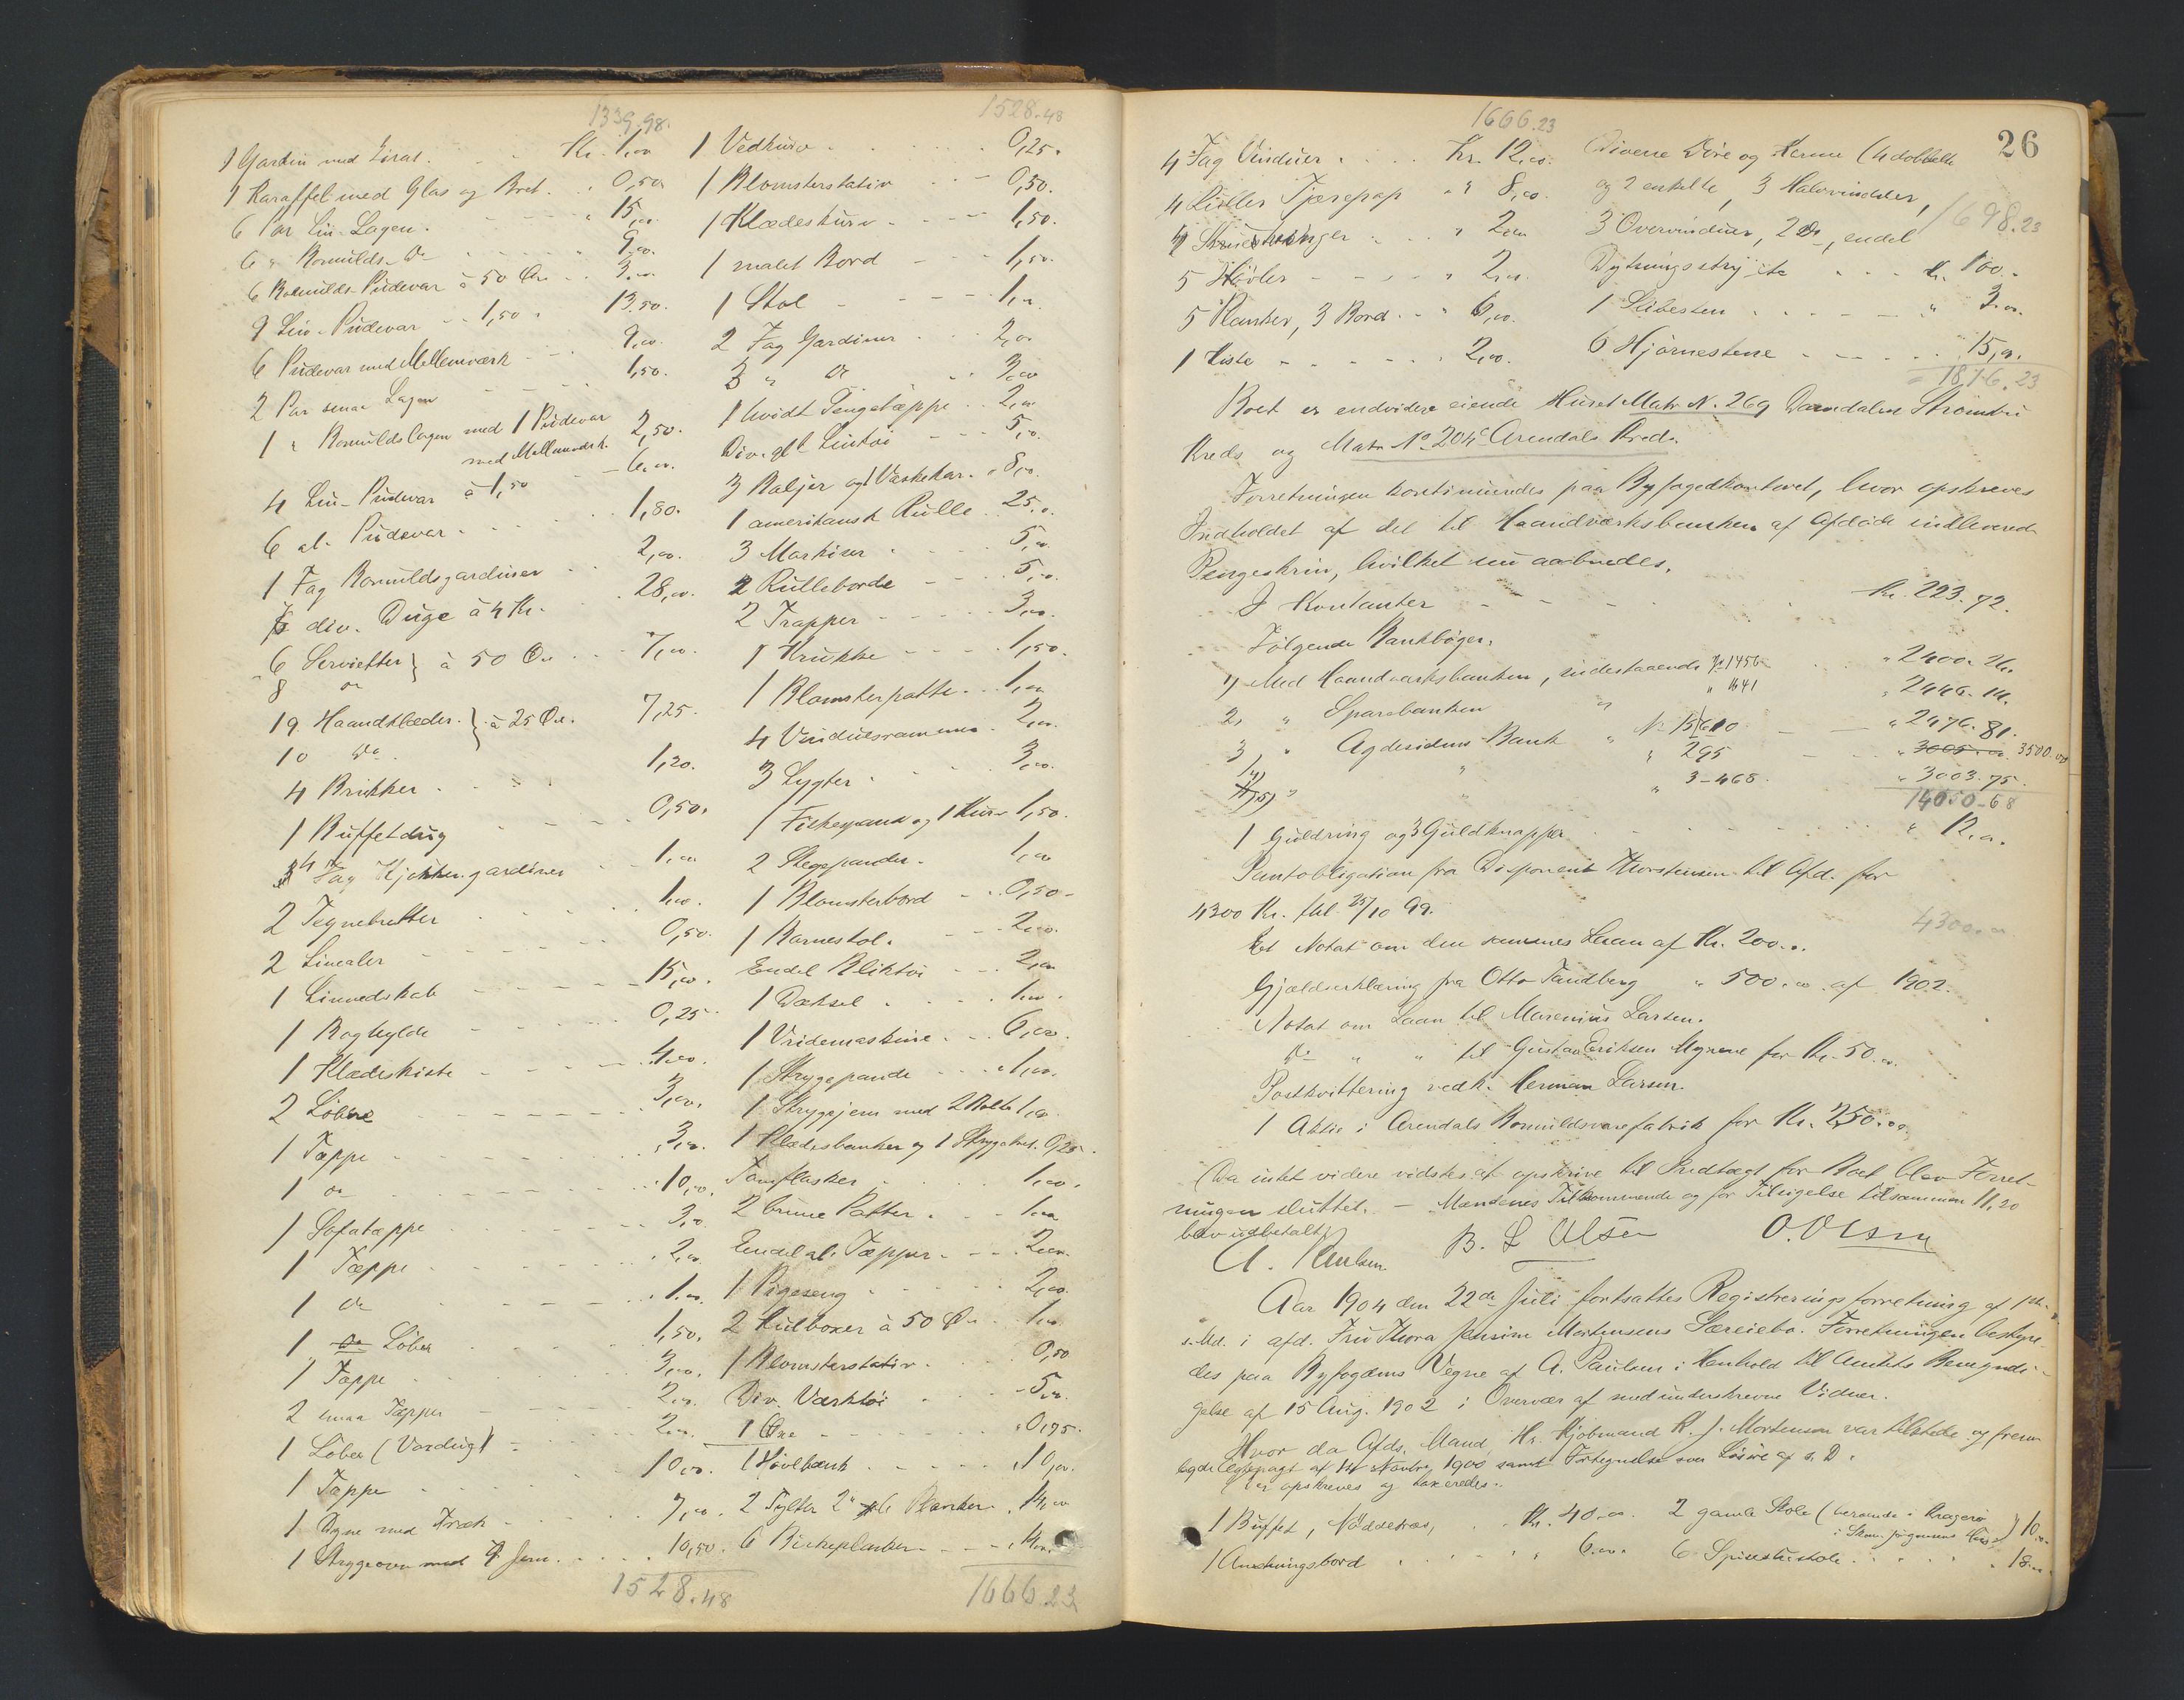 1339.98.
1 Gardin med Kirat. Kr. 1,00
1 Karaffel med Glas og Bret. 0,50
6 Par Lin-Lagen. 15,00
6 " Bomulds- Do 9,00.
6 Bomulds-Pudevar à 50 Øre 3,00.
9 Lin-Pudevar - 1,50 13.50.
6 Pudevar med Mellemværk 9,00.
2 Par smaa Lagen 1,50.
1 " Bomuldslagen med 1 Pudevar
med Mellemværk. 2,50.
4 Lin-Pudevar à 1,50 6,00.
6 al. Pudevar. 1,80.
1 Fag Bomuldsgardiner 2,00.
7 div. Duge à 4 Kr. 28,00.
6 Servietter } à 50 Øre 7,00.
8 Do
19 Haandklæder. } à 25 Øre. 7,25.
10 Do.
4 Brikker. 1,20.
1 Buffetdug 0,50.
4 Fag Kjøkkengardiner 1,00
2 Tegnebretter 1,00.
2 Linealer 0,50.
1 Linnedskab 15,00.
1 Boghylde 0,25
1 Klædeskiste 4,00.
2 Løbere 3,00.
1 Tæppe 3,00.
1 Do 10,00.
1 Sofatæppe 3,00
1 Tæppe 2,00.
1 Do 1,00.
1 Do Løber 1,50.
1 Tæppe 3,00.
2 smaa Tæpper 2,00.
1 Løber (Voxdug) 2,00.
1 Tæppe 10,00.
1 Dyne med Træk 7,00.
1 Strygeovn med 7 Jern. 10,50.
1528.48
1528.48
1 Vedkurv 0,25.
1 Blomsterstativ 0,50.
1 Klædeskurv 1,50.
1 malet Bord 1,50.
1 Stol 1,00.
2 Fag Gardiner 2,00
3 " Do 3,00
1 hvidt Sengetæppe 2,00
Div. gl. Lintøi 5,00.
3 Baljer og 1 Vaskekar. 8,00.
1 amerikansk Rulle 25,00.
3 Markiser 5,00.
2 Rulleborde 5,00.
2 Trapper 3,00.
1 Krukke 1,50.
1 Blomsterpotte 1,00
4 Vinduesrammer 2,00.
3 Lygter 3,00.
1 Fiskepande og 1 Kurv 1,50.
2 Stegepander. 1,00
1 Blomsterbord 0,50
1 Barnestol. 2,00.
Endel Bliktøi 2,00
1 Dæksel 1,00.
1 Vridemaskine 6,00.
1 Strygepande 1,00.
1 Strygejern med 2 Bolte 1,00
1 Klædesbanker og 1 Strygebret. 0,25.
Tomflasker 1,00.
2 brune Potter 1,00
Endel al. Tæpper 2,00.
1 Pigeseng 2,00.
2 Kulboxer à 50 Øre 1,00.
1 Blomsterstativ 0,50
Div. Værktøi 5,00.
1 Øxe 0,75.
1 Høvlbænk 10,00.
2 Tylfter 2" Planker 14,00
6 Birkeplanker 14,00.
1666.23
1666.23
26
4 Fag Vinduer Kr. 12,00.
4 Ruller Tjærepap " 8,00.
4 Skruetvinger " 2,00
5 Høvler " 2,00.
5 Planker, 3 Bord " 6,00.
1 Kiste 2,00.
Diverse Døre og Karme (4 dobbelte
og 2 enkelte, 3 Halvvinduer,
1698.23
3 Overvinduer, 2 Do, endel
Kr. 100.-
1 Slibesten " 3.00.
6 Hjørnestene 15,00.
1816.23
Boet er endvidere eiende Huset Matr. N. 269 Barndalen Strømbu
Kreds og Matr No 204c Arendals Kreds.
Forretningen kontinuerdes paa Byfogedkontoret, hvor opskreves
Indholdet af det til Haandværksbanken af Afdøde indleverede
Pengeskrin, hvilket nu aabnedes.
I Kontanter Kr. 223.72.
Følgende Bankbøger.
1) Med Haandværksbanken, indestaaende No 1456 " 2400.26.
2, " Sparebanken " " 1641 " 2446.14.
3, " Agdesidens Bank " No 15610 " 2476.81.
4) " " " 295 " 3005.00 3500.00
5) " " " 3-468. " 3003.75.
14050-68
1 Guldring og 3 Guldknapper " 12,00.
Pantobligation fra Disponent Thorstensen til Afd. for
4300 Kr. thl. 25/10 99. 4300.00
Et Notat om den sammes Laan af Kr. 200.00.
Gjældserklæring fra Otto Tandberg " 500.00 af 1902.
Notat om Laan til Marenius Larsen.
Do " " til Gustav Eriksen Myrene for Kr. 50.00.
Postkvittering vedk. Herman Larsen.
1 Aktie i Arendals Bomuldsvarefabrik for Kr. 250.00
Da intet videre vidstes at opskrive til Indtægt for Boet blev Forret-
ningen sluttet. - Mændenes Tilkommende og for Tilsigelse tilsammen 11,20
blev udbetalt.
A. Paulsen B. L Olsen O. Olsen
Aar 1904 den 22de Juli fortsattes Registreringsforretning af 1ste
s. Md. i afd. Fru Thora Mortensens Særeiebo. Forretningen bestyre-
des paa Byfogdens Vegne af A. Paulsen i Henhold til Amtets Bemyndi-
gelse af 15 Aug. 1902 i Overvær af medunderskrevne Vidner.
Hvor da Afds. Mand, Hr. Kjøbmand K. J. Mortensen var tilstede og frem-
lagde Ægtepagt af 14 1900 samt Fortegnelse over Løsøre af s. D.
opskreves og taxeredes:
1 Buffet, Nøddetræ, Kr. 40.00.
1 Anretningsbord " 6.00.
2 gamle Stole (beroende i Kragerø
i Jørgensens Hus) 10.00
6 Spisestuestole 18.00